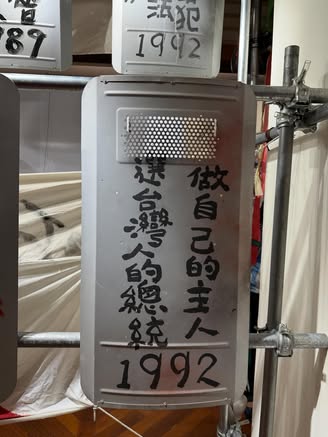 1989
法犯
1992
做自己的主人
選台灣人的總統
1992